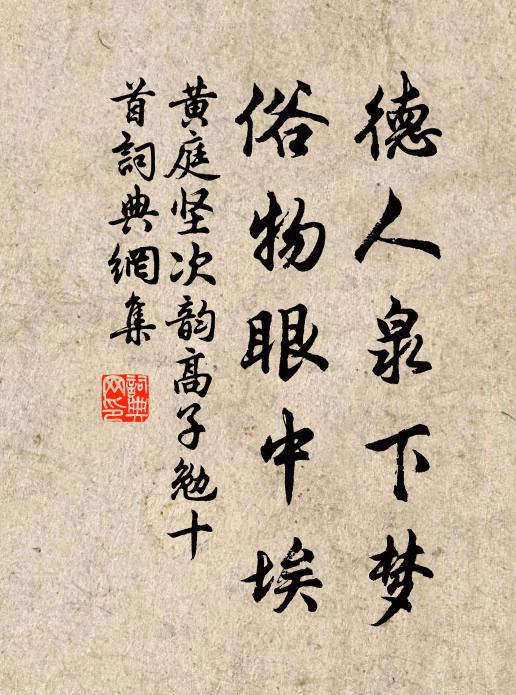 德人泉下梦
俗物眼中埃
黄庭坚次韵高子勉十
首詞典網集
詞典网印